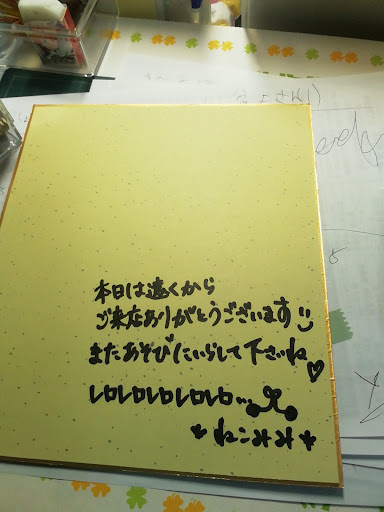 本日は遠くから
ご来店ありがとうございます
またあそびにいらして下さいね♡
レロレロレロレロレロ…
*ねこみみ*